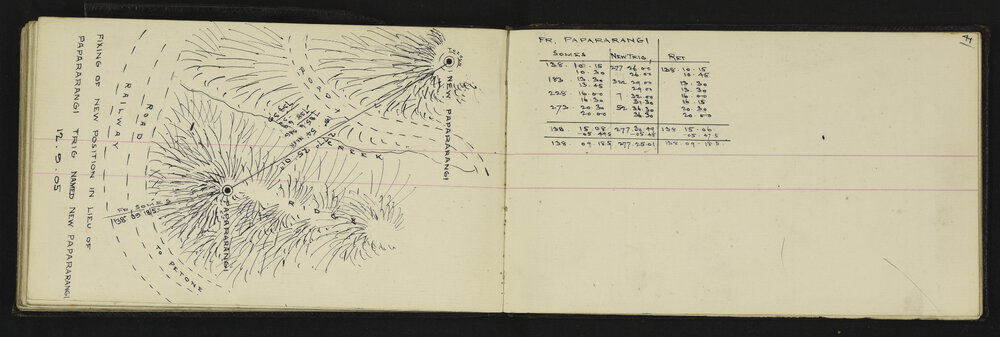 FIXING OF NEW POSITION IN LIEU OF
PAPARARANGI TRIG NAMED NEW PAPARARANGI
12.9.05
RAILWAY
ROAD
TO PETONE
FR. SOMES
138 09 18.5
PAPARARANGI
RIDGE
CREEK
ROAD
NEW PAPARARANGI
FR. PAPARARANGI
SOMES NEW TRIG. RET
138. 10. 15 277. 26. 00 138. 10. 15
10. 30 26. 00 10. 45
183. 13. 30 322. 29. 00 13. 30
13. 45 29. 00 13. 30
228. 16. 00 7. 32. 00 16. 00
16. 30 32. 30 16. 15
273. 20. 30 52. 36. 30 20. 30
20. 00 36. 30 20. 00
138. 15. 08 277. 30. 49 138. 15. 06
-05. 49.5 -05. 48 -05. 47.5
138. 09. 18.5 277. 25. 01 138. 09. 18.5